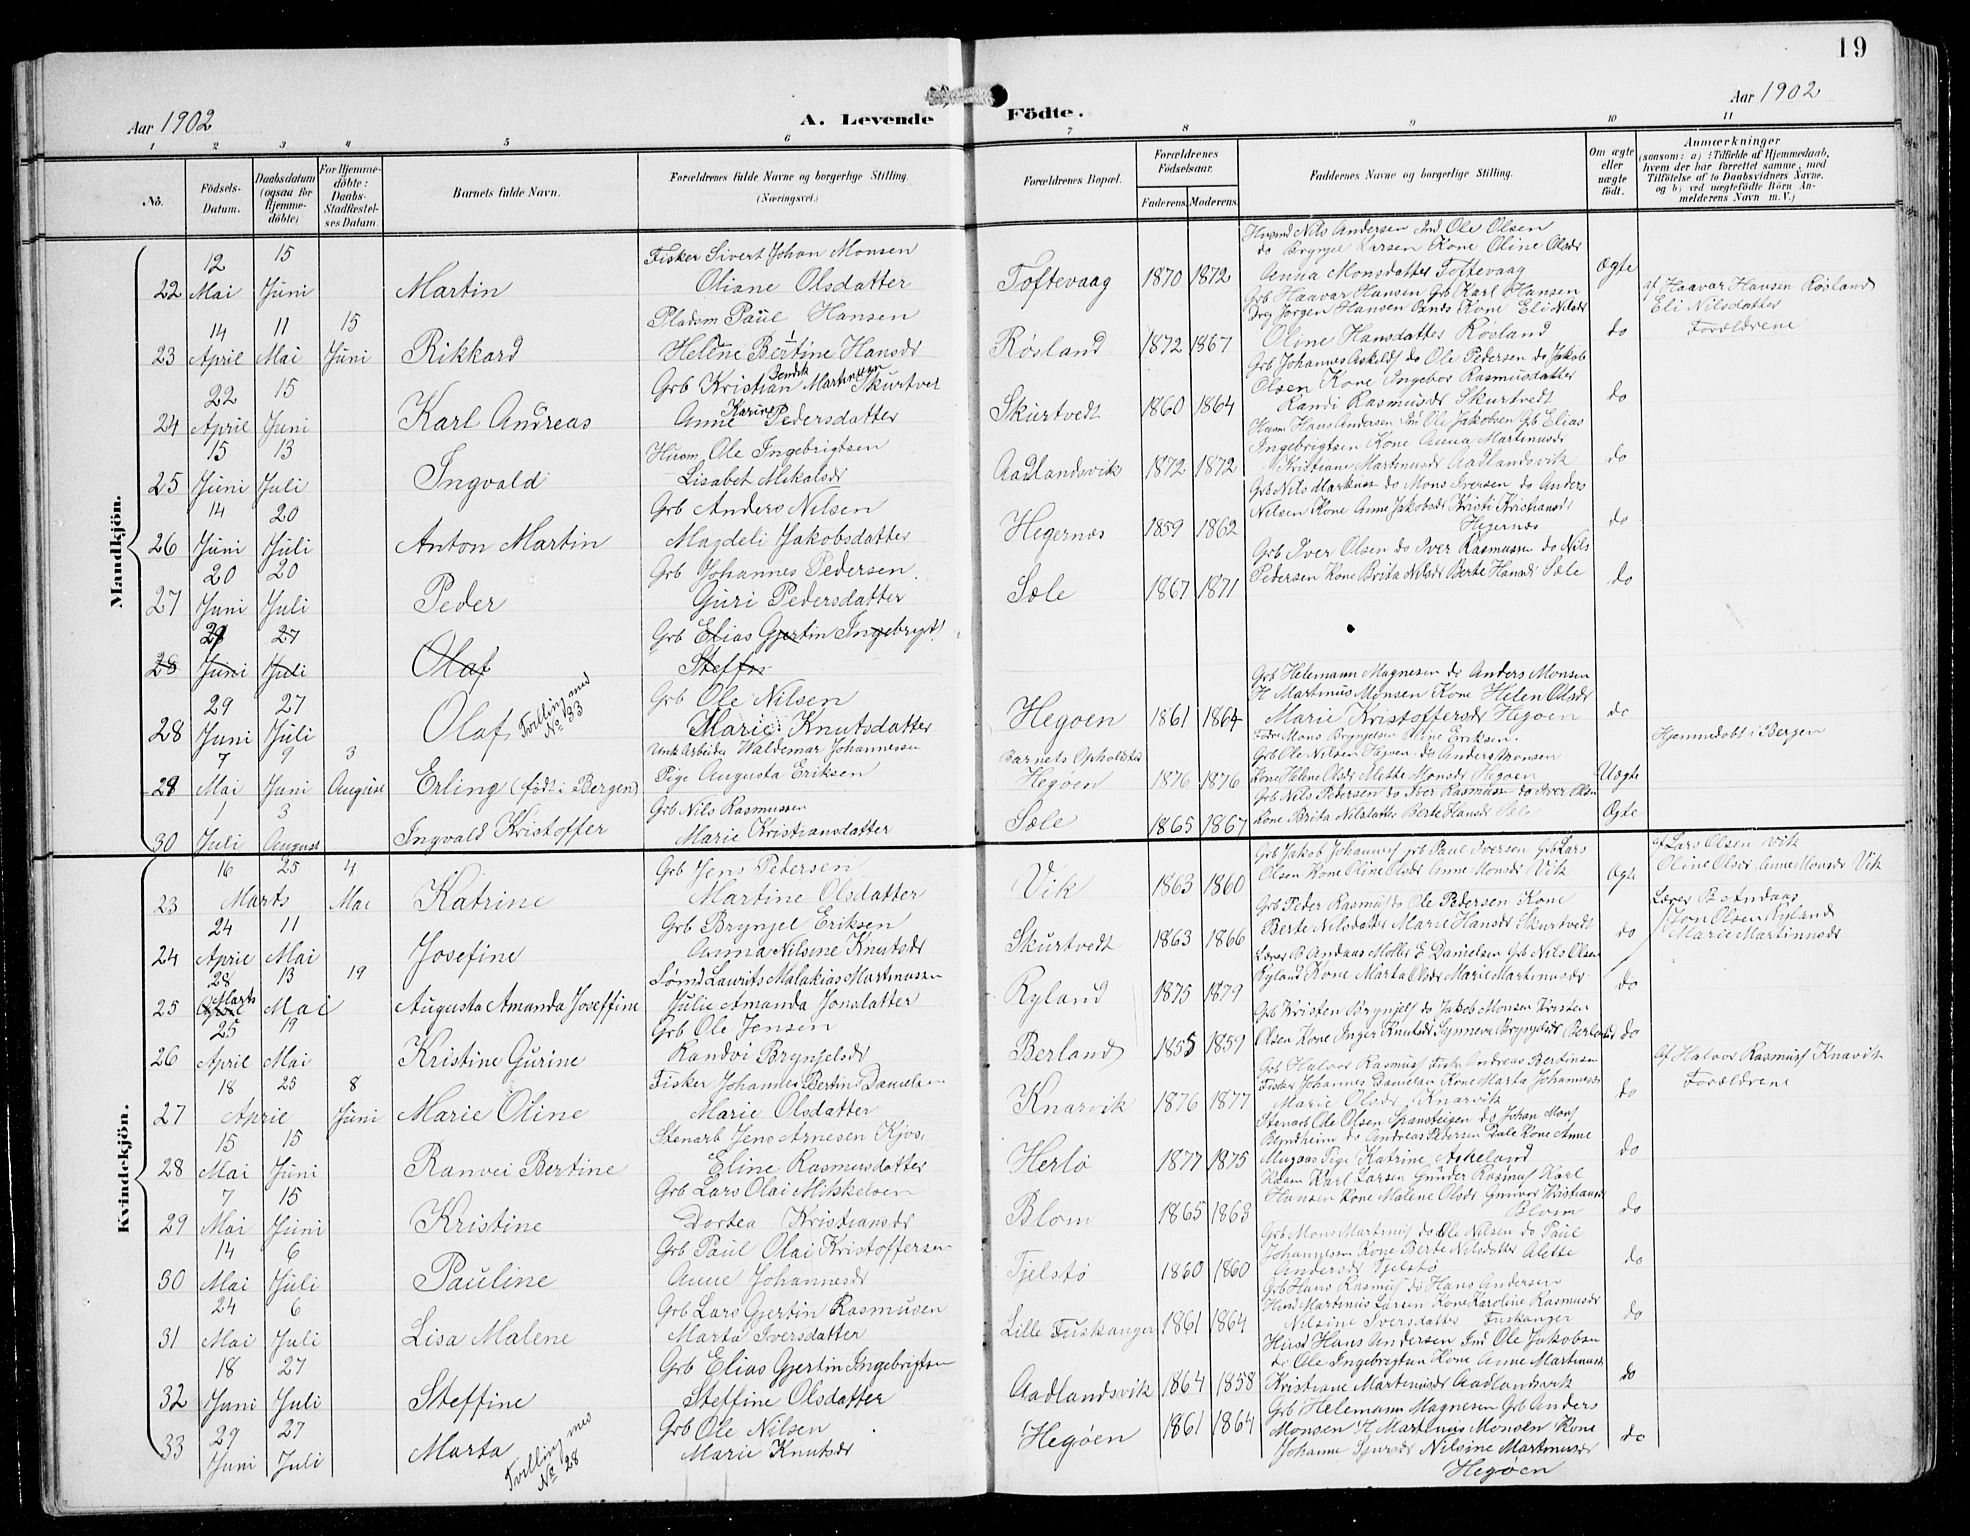 19
Aar 1902
A. Levende Födte.
Aar 1902
1 2 3 4 5 6 7 8 9 10 11
No. Födsels-Datum. Daabsdatum (ogsaa for Hjemme-döbte) For Hjemme-döbte: Daabs-Stadfæstel-ses Datum. Barnets fulde Navn. Forældrenes fulde Navne og borgerlige Stilling. (Næringsvei.) Forældrenes Bopæl. Forældrenes Födselsaar. Faderens. Moderens. Faddernes Navne og borgerlige Stilling. Om ægte eller uægte födt. Anmærkninger (saasom: a) i Tilfælde af Hjemmedaab, hvem der har forrettet samme, med Tilföielse af to Daabsvidners Navne. og b) ved uægtefödte Börn An-melderens Navn m. V.)
Mandkjön.
22 12 Mai 15 Juni Martin Fisker Sivert Johan Monsen
Oliane Olsdatter Toftevaag 1870 1872 Husmd Nils Andersen Ind Ole Olsen
do Brynjel Larsen Kone Oline Olsdr
Anna Monsdatter Toftevaag Ægte
23 14 April 11 Mai 15 Juni Rikkard Pladsm Paul Hansen
Helene Bertine Hansdr Røsland 1872 1867 Grb Haavar Hansen Grb Karl Hansen
Jørgen Hansen Kone Eli Nilsdr
Oline Hansdatter Røsland do af Haavar Hansen Røsland
Eli Nilsdatter
Forældrene
24 22 April 15 Juni Karl Andreas Grb Kristian Bendik Martinusen Skurtvet
Anne Karine Pedersdatter Skurtvedt 1860 1864 Grb Johannes Askelds do Ole Pedersen do Jakob
Olsen Kone Ingebor Rasmusdatter
Randi Rasmusdr Skurtvedt do
25 15 Juni 13 Juli Ingvald Husm Ole Ingebrigtsen
Lisabet Mikalsdr Aadlandsvik 1872 1872 Husm Hans Andersen Ind Ole Jakobsen Grb Elias
Ingebrigtsen Kone Anna Martinusdr
Kristiane Martinusdr Aadlandsvik do
26 14 Juni 20 Juli Anton Martin Grb Anders Nilsen
Magdeli Jakobsdatter Hegernæs 1859 1862 Grb Nils Markus do Mons Iversen do Anders
Nilsen Kone Anne Jakobsdr Kristi Kristiansdr
Hegernæs do
27 20 Juni 20 Juli Peder Grb Johannes Pedersen
Guri Pedersdatter Sæle 1867 1871 Grb Iver Olsen do Iver Rasmussen do Nils
Pedersen Kone Brita Nilsdr Berte Hansd Sæle do
28 Juni 27 Juli Olaf Grb Elias Gjertin Ingebrigt
Steffin
28 29 Juni 27 Juli Olaf Tvilling med No 33 Grb Ole Nilsen
Marie Knutsdatter Hegøen 1861 1864 Grb Helemann Magnesen do Anders Monsen
H Martinus Monsen Kone Helen Olsdr
Marie Kristoffersdr Hegøen do
29 7 Mai 9 Juni 3 August Erling (født i Bergen) Unk Arbeider Waldemar Johannesen
Pige Augusta Eriksen Barnets Opholdsted
Hegøen 1876 1876 Mons Brynjelsen Eriksen
Grb Ole Nilsen Hegøen do Anders Monsen
Kone Helene Olsdr Mette Monsdr Hegøen Uægte Hjemmedøbt i Bergen
30 1 Juli 3 August Ingvald Kristoffer Grb Nils Rasmussen
Marie Kristiansdatter Sæle 1865 1867 Grb Nils Pedersen do Iver Rasmussen do Iver Olsen
Kone Brita Nilsdatter Berte Hansdr Sæle Ægte
Kvindekjön.
23 16 Marts 25 4 Mai Katrine Grb Jens Pedersen
Martine Olsdatter Vik 1863 1860 Grb Jakob Johannes Grb Paul Iversen Grb Lars
Olsen Kone Oline Olsdr Anne Monsdr Vik Ægte af Lars Olsen Vik
Oline Olsdr Anne Monsdr Vik
24 24 April 11 Mai Josefine Grb Brynjel Eriksen
Anna Nilsine Knutsdr Skurtvedt 1863 1866 Grb Peder Rasmus do Ole Pedersen Kone
Berte Nilsdatter Marie Hansdr Skurtvedt do
25 28 April Marts 13 Mai 19 Augusta Amanda Joseffine Sømd Laurits Malakias Martinussen
Julie Amanda Jonsdatter Ryland 1875 1879 Lærer B Andaas Møller E Danielsen Grb Nils Olsen
Ryland Kone Marta Olsdr Marie Martinusdr do Lærer Botndaas
Jon Olsen Ryland
Marie Martinusdr
26 25 April 19 Mai Kristine Gurine Grb Ole Jensen
Randvi Brynjelsdr Berland 1855 1859 Grb Kristen Brynjels do Jakob Monsen Kristen
Olsen Kone Inger Knutsdr Synneve Brynjelsdr Berland do
27 18 April 25 8 Juni Marie Oline Fisker Johannes Bertin Danielsen
Marie Olsdatter Knarvik 1876 1877 Grb Halvor Rasmus Fisk Andreas Bertinsen
Fisker Johannes Danielsen Kone Marta Johannesdr
Marie Olsdr Knarvik do Af Halvor Rasmus Knavik
Forældrene
28 15 Mai 15 Juni Ranvei Bertine Stenarb Jens Arnesen Kjos
Eline Rasmusdatter Herlø 1877 1875 Stenarb Ole Olsen do Johan Mons
do Andreas Pedersen Dale Kone Anne
Pige Katrine Askeland do
29 7 Mai 15 Juni Kristine Grb Lars Olai Mikkelsen
Dortea Kristiansdr Blom 1865 1863 Karl Larsen Gunder Rasmus Karl
Hansen Kone Malene Olsdr Gunvor Kristiansdr
Blom do
30 14 Mai 6 Juli Pauline Grb Paul Olai Kristoffersen
Anne Johannesdr Tjelstø 1860 1860 Grb Mons Martinus do Ole Nilsen do Paul
Johannesen Kone Berte Nilsdatter Alette
Andersdr Tjelstø do
31 24 Mai 6 Juli Lisa Malene Grb Lars Gjertin Rasmusen
Marta Iversdatter Lille Fuskanger 1861 1864 Grb Hans Rasmus do Hans Andersen
Husd Martinus Larsen Kone Karoline Rasmusdr
Nilsine Iversdatter Fuskanger do
32 18 Juni 27 Juli Steffine Grb Elias Gjertin Ingebrigtsen
Steffine Olsdatter Aadlandsvik 1864 1858 Husd Hans Andersen Ind Ole Jakobsen
do Ole Ingebrigtsen Kone Anne Martinusdr
Kristiane Martinusdr Aadlandsvik do
33 29 Juni 27 Juli Marta Tvilling med No 28 Grb Ole Nilsen
Marie Knutsdr Hegøen 1861 1864 Grb Helemann Magnesen Grb Anders
Monsen H Martinus Monsen Kone
Johanne Sjursdr Nilsine Martinusdr
Hegøen do